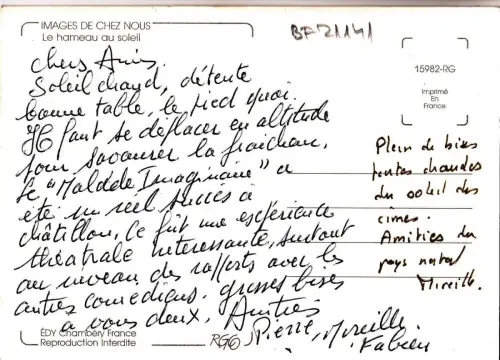 IMAGES DE CHEZ NOUS
Le hameau au soleil
BFZ1141
15982-RG
Imprimé
En
France
Chers Amis.
Soleil chaud, détente
bonne table, le pied quoi.
Il faut se déplacer en altitude
pour savourer la fraicheur.
Le "Malade Imaginaire" a
été un réel succès à
châtillon. Ce fût une expérience
théatrale interessante, surtout
au niveau des rapports avec les
autres comédiens. grosses bises
à vous deux. Amitiés
Pierre, Mireille,
Fabien
Plein de bises
toutes chaudes
du soleil des
cimes.
Amitiés du
pays natal
Mireille.
EDY Chambéry France
Reproduction Interdite
RG6